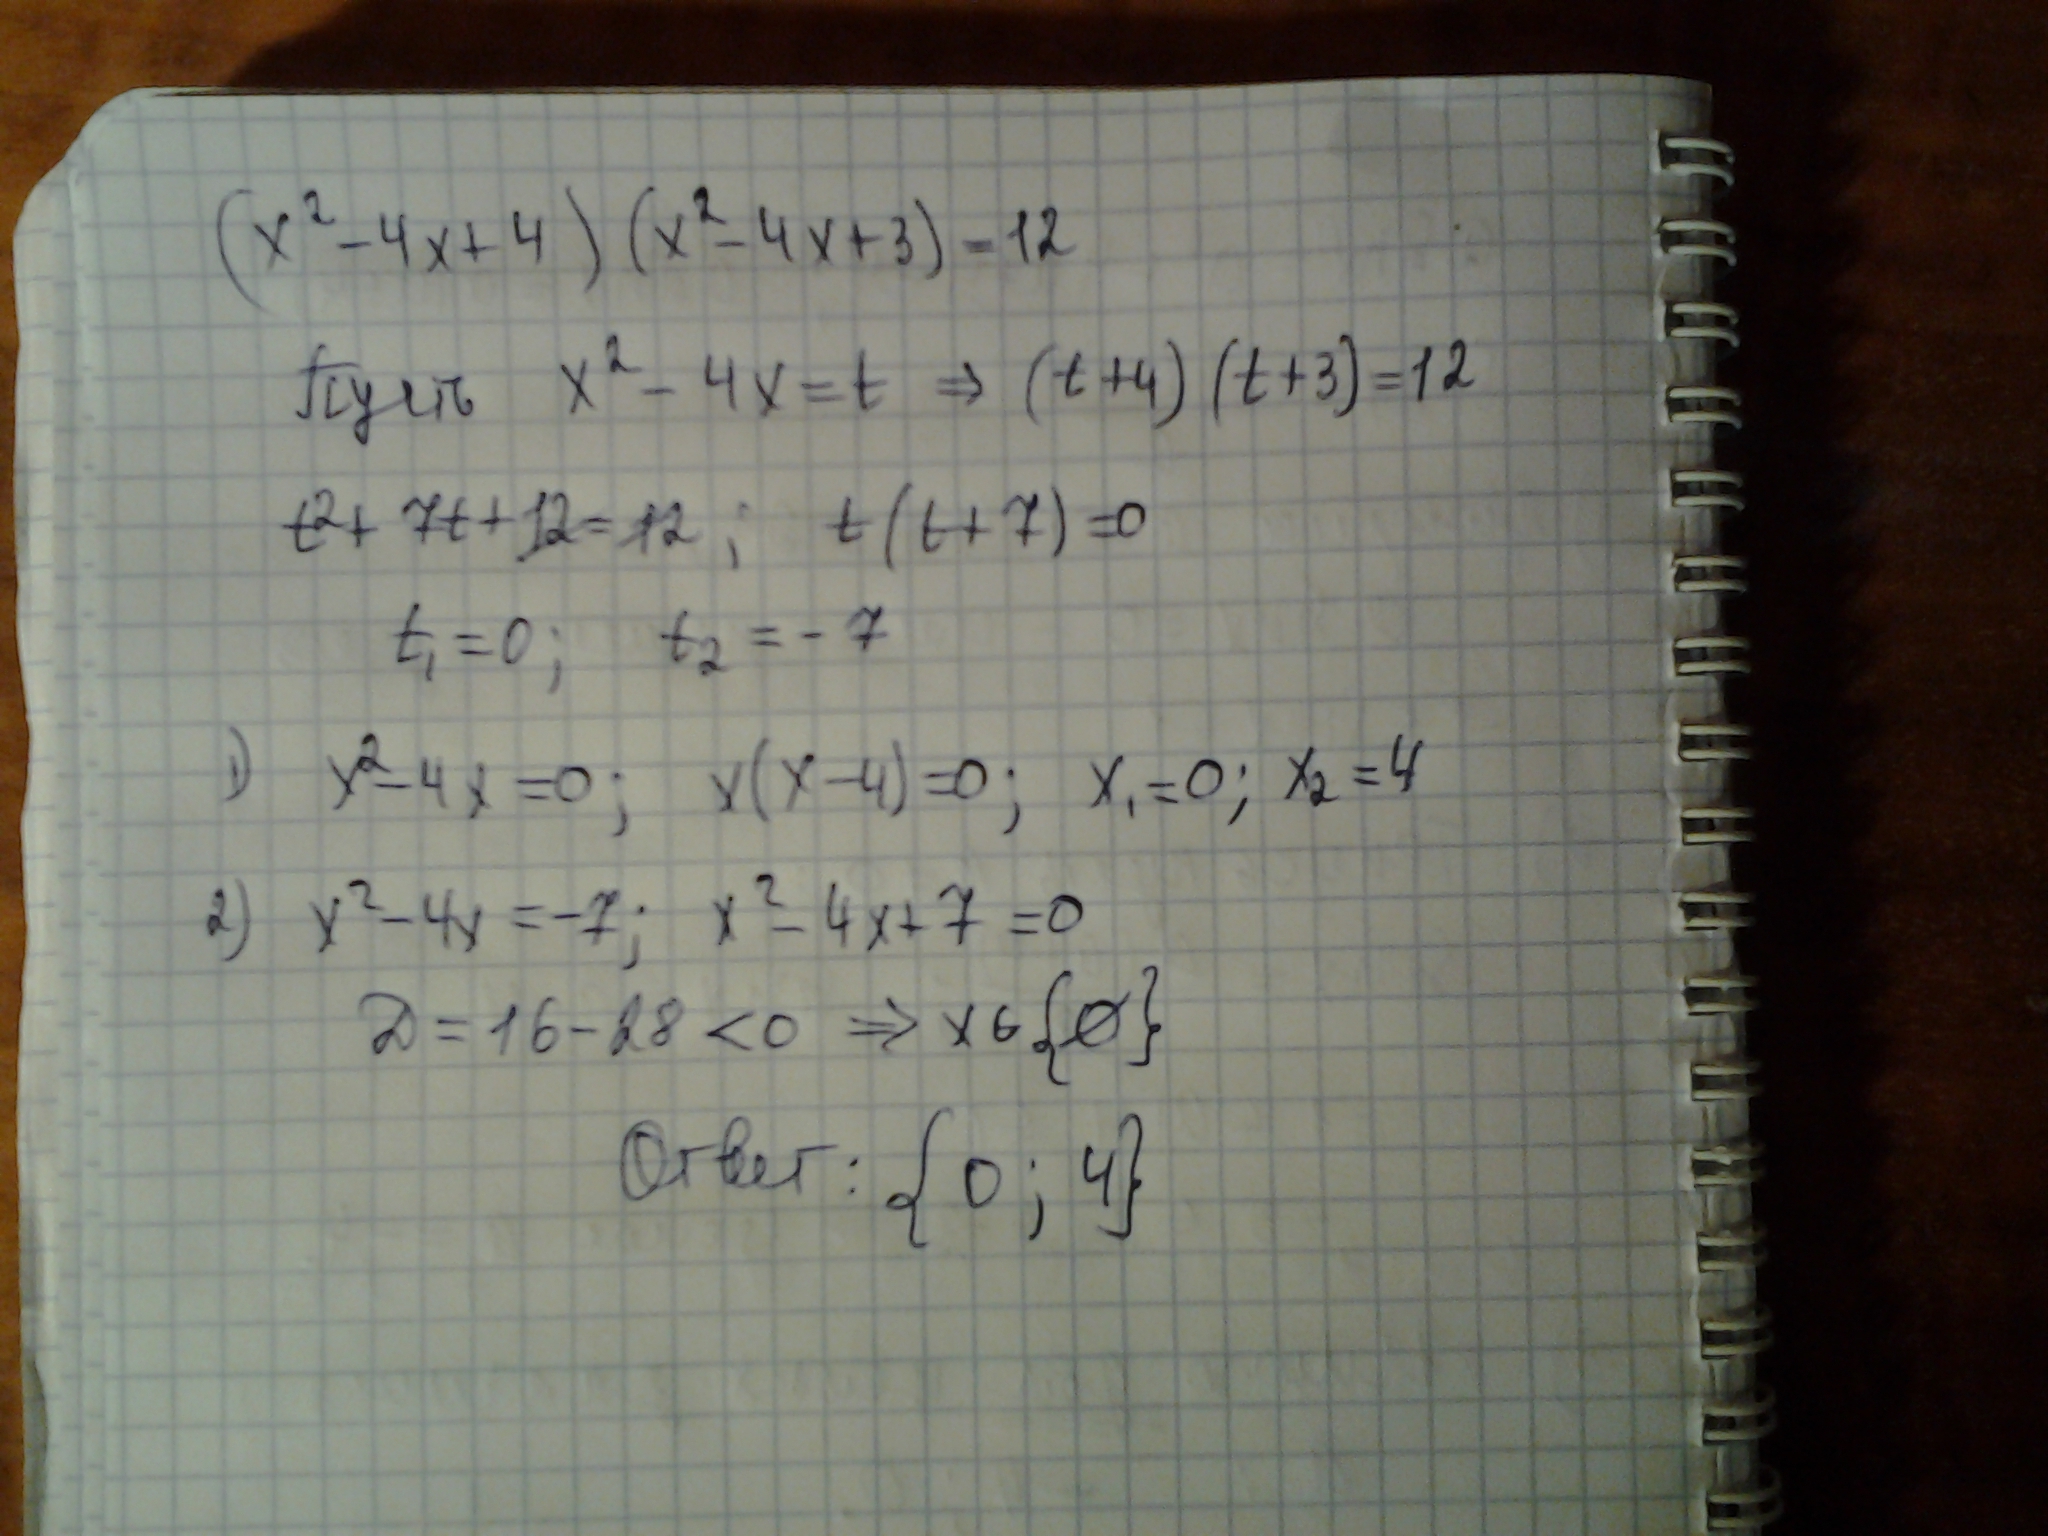 (x² - 4x + 4)(x² - 4x + 3) = 12
Пусть x² - 4x = t ⇒ (t + 4)(t + 3) = 12
t² + 7t + 12 = 12; t(t + 7) = 0
t₁ = 0; t₂ = - 7
1) x² - 4x = 0; x(x - 4) = 0; x₁ = 0; x₂ = 4
2) x² - 4x = -7; x² - 4x + 7 = 0
D = 16 - 28 < 0 ⇒ x ∈ {∅}
Ответ: {0; 4}